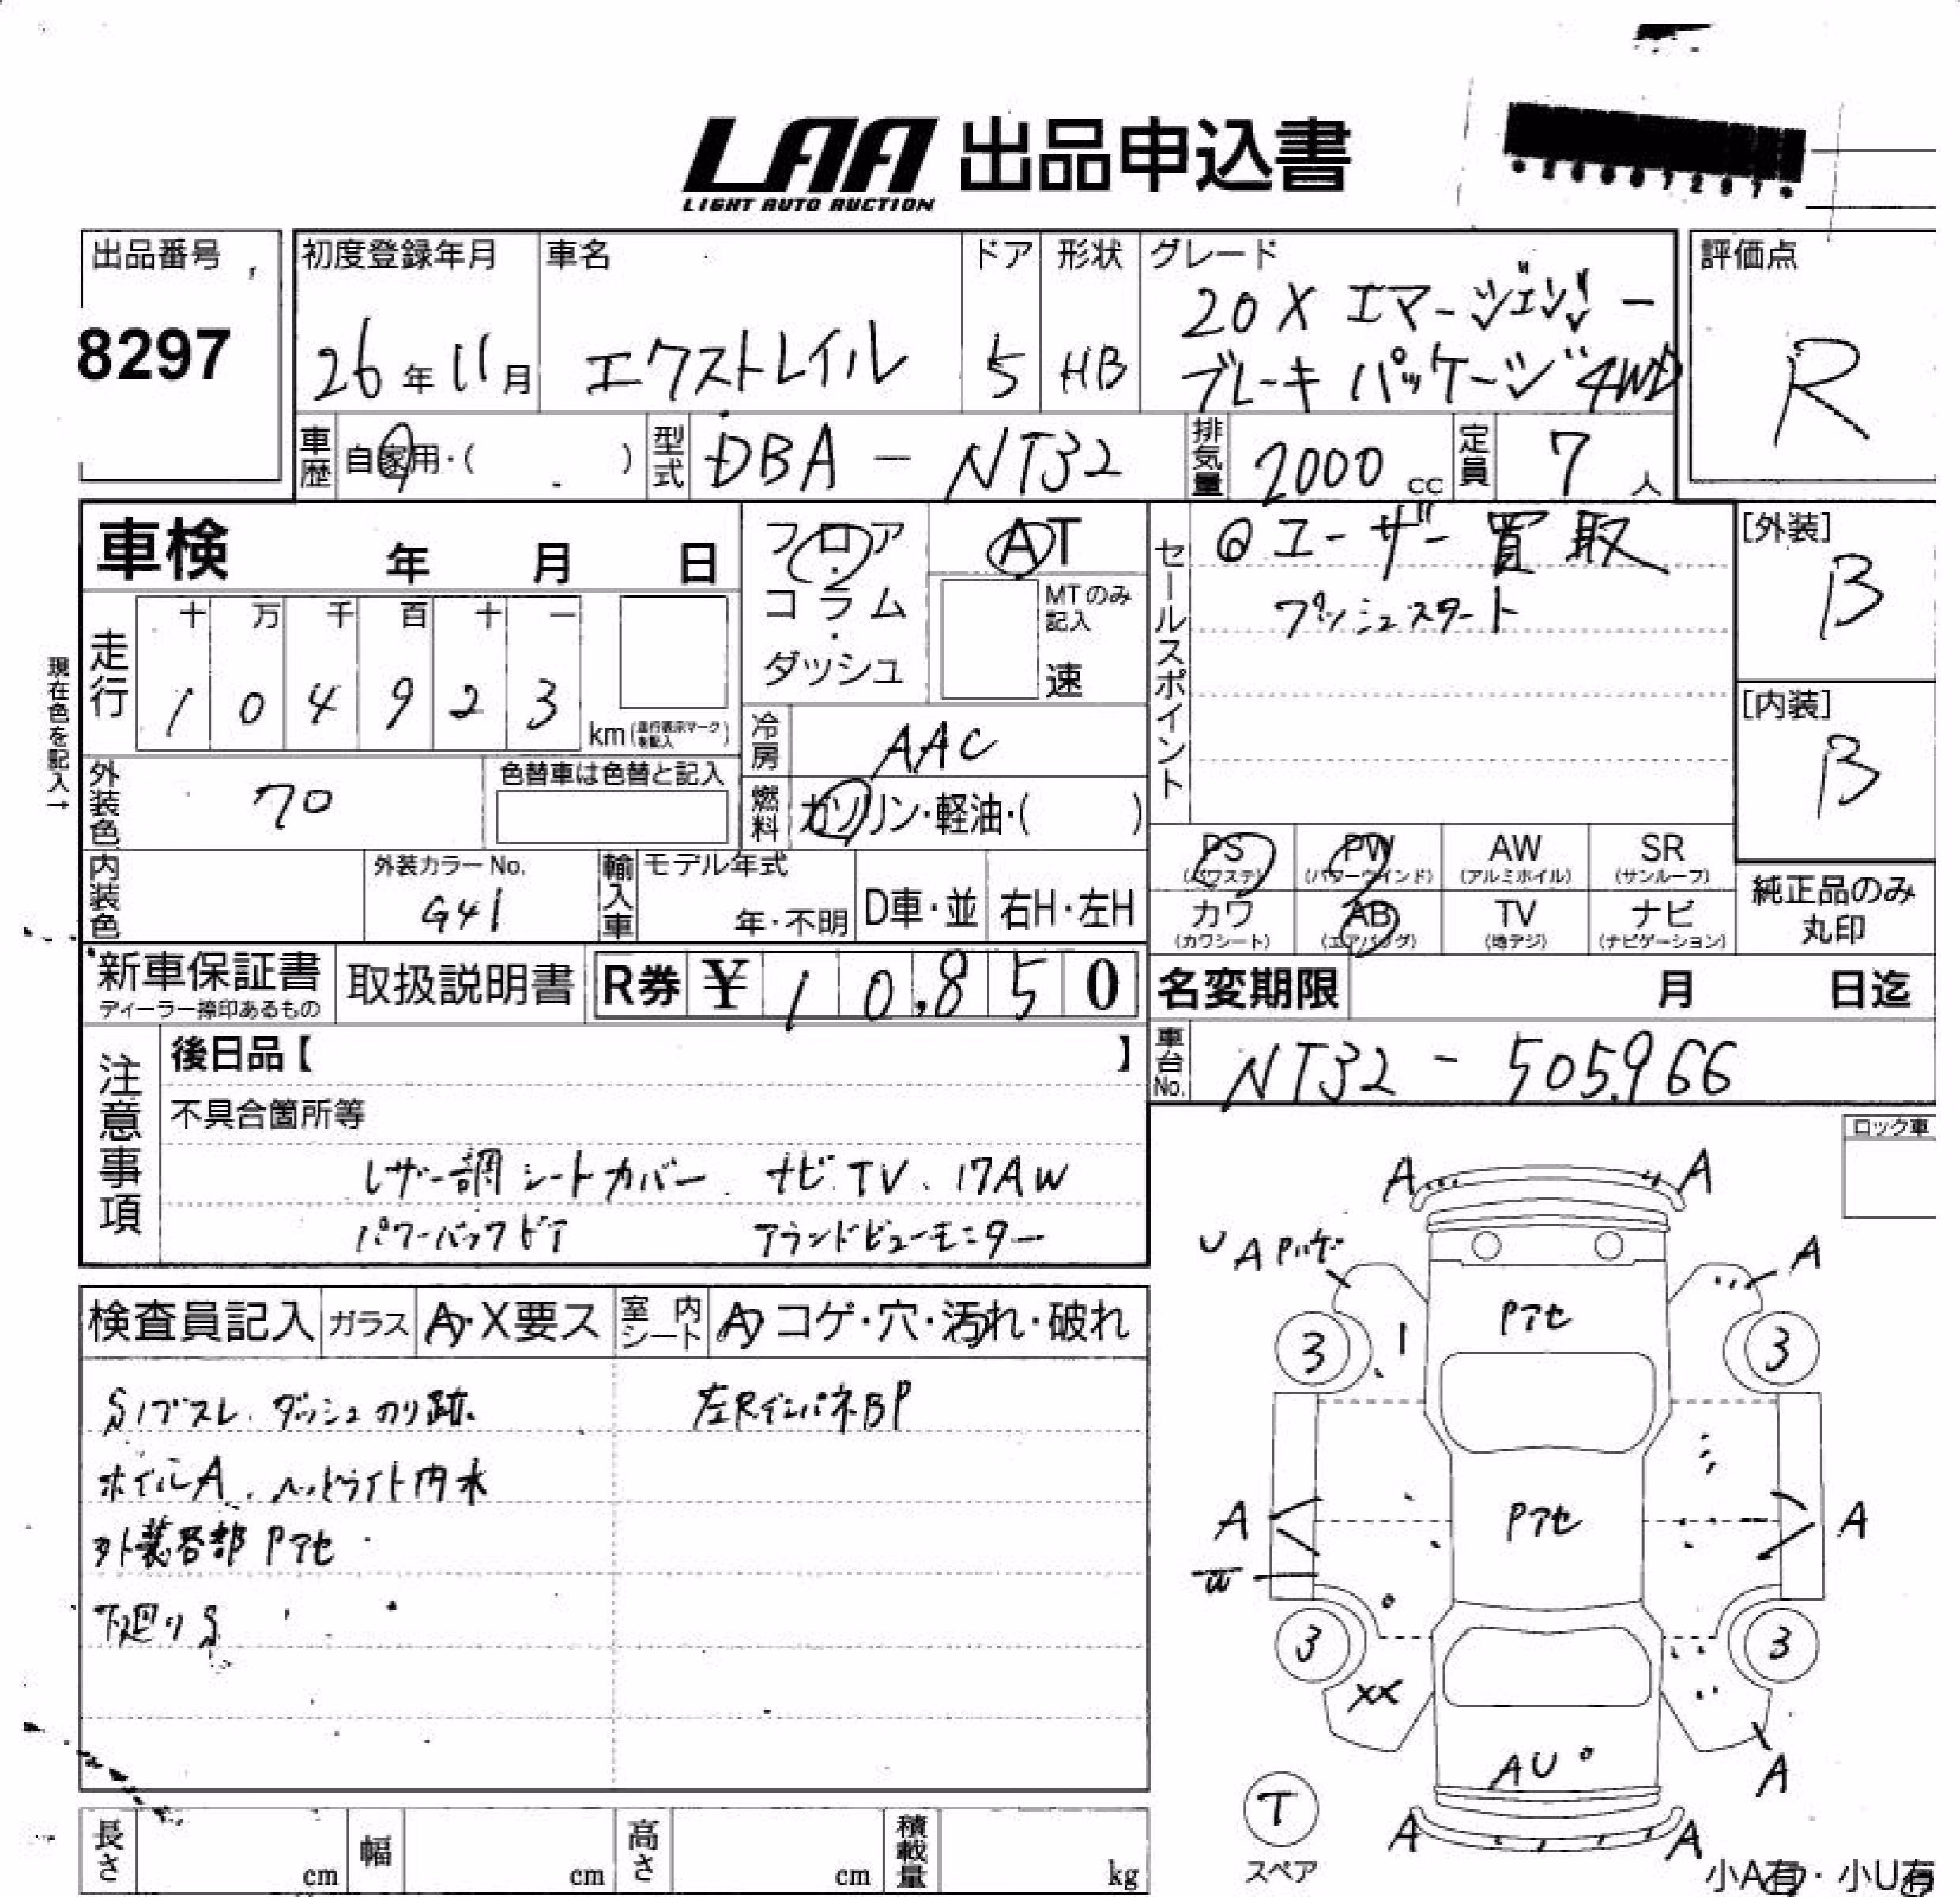 LAA 出品申込書
LIGHT AUTO AUCTION
出品番号
8297
初度登録年月
26年11月
車名
エクストレイル
ドア
5
形状
HB
グレード
20X エマージェンシー
ブレーキ パッケージ 4WD
評価点
R
車歴
自家用・( )
型式
DBA - NT32
排気量
2000 cc
定員
7人
車検 年 月 日
フロア
・
コラム
・
ダッシュ
AT
MTのみ
記入
速
セールスポイント
ユーザー買取
プッシュスタート
[外装]
B
[内装]
B
現在色を記入→
走行
十 万 千 百 十 一
1 0 4 9 2 3
km
冷房
AAC
外装色
70
色替車は色替と記入
燃料
ガソリン・軽油・( )
PS
(パワステ)
PW
(パワーウインド)
AW
(アルミホイル)
SR
(サンルーフ)
カワ
(カワシート)
AB
(エアバッグ)
TV
(地デジ)
ナビ
(ナビゲーション)
純正品のみ
丸印
内装色
外装カラーNo.
G41
輸入車
モデル年式
年・不明
D車・並
右H・左H
新車保証書
ディーラー捺印あるもの
取扱説明書
R券 ¥ 10,850
名変期限 月 日迄
車台No.
NT32 - 505966
注意事項
後日品【 】
不具合箇所等
レザー調シートカバー ナビ.TV、17AW
パワーバックドア アランドビューモニター
ロック車
検査員記入
ガラス
A・X要ス
室内
シート
A コゲ・穴・汚れ・破れ
ダッシュのり跡.
左RインパネBP
ホイルA. ヘッドライト内水
外装各部 Pアセ
下廻りS
A
A
U A
A
Pアセ
3
3
A
Pアセ
A
3
3
XX
AU
A
T
スペア
A
A
小A有・小U有
長さ
cm
幅
cm
高さ
cm
積載量
kg